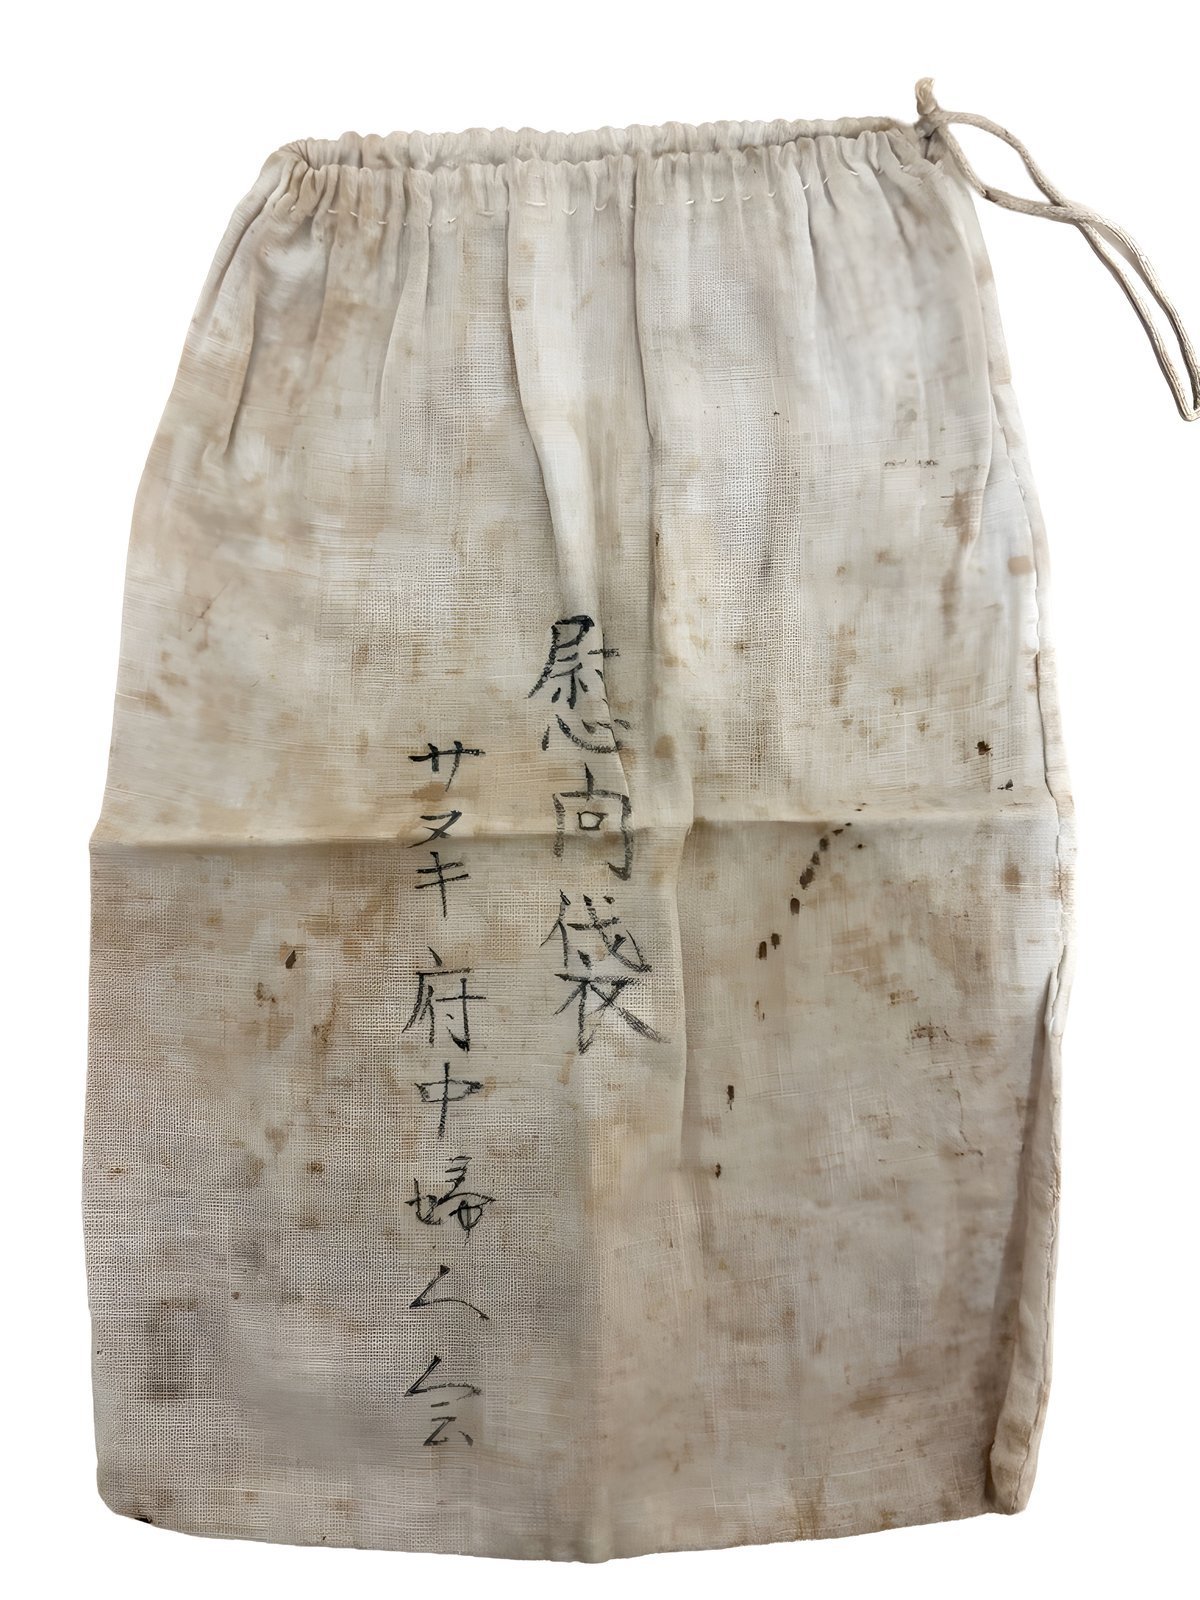 慰向袋
サヌキ府中婦人会